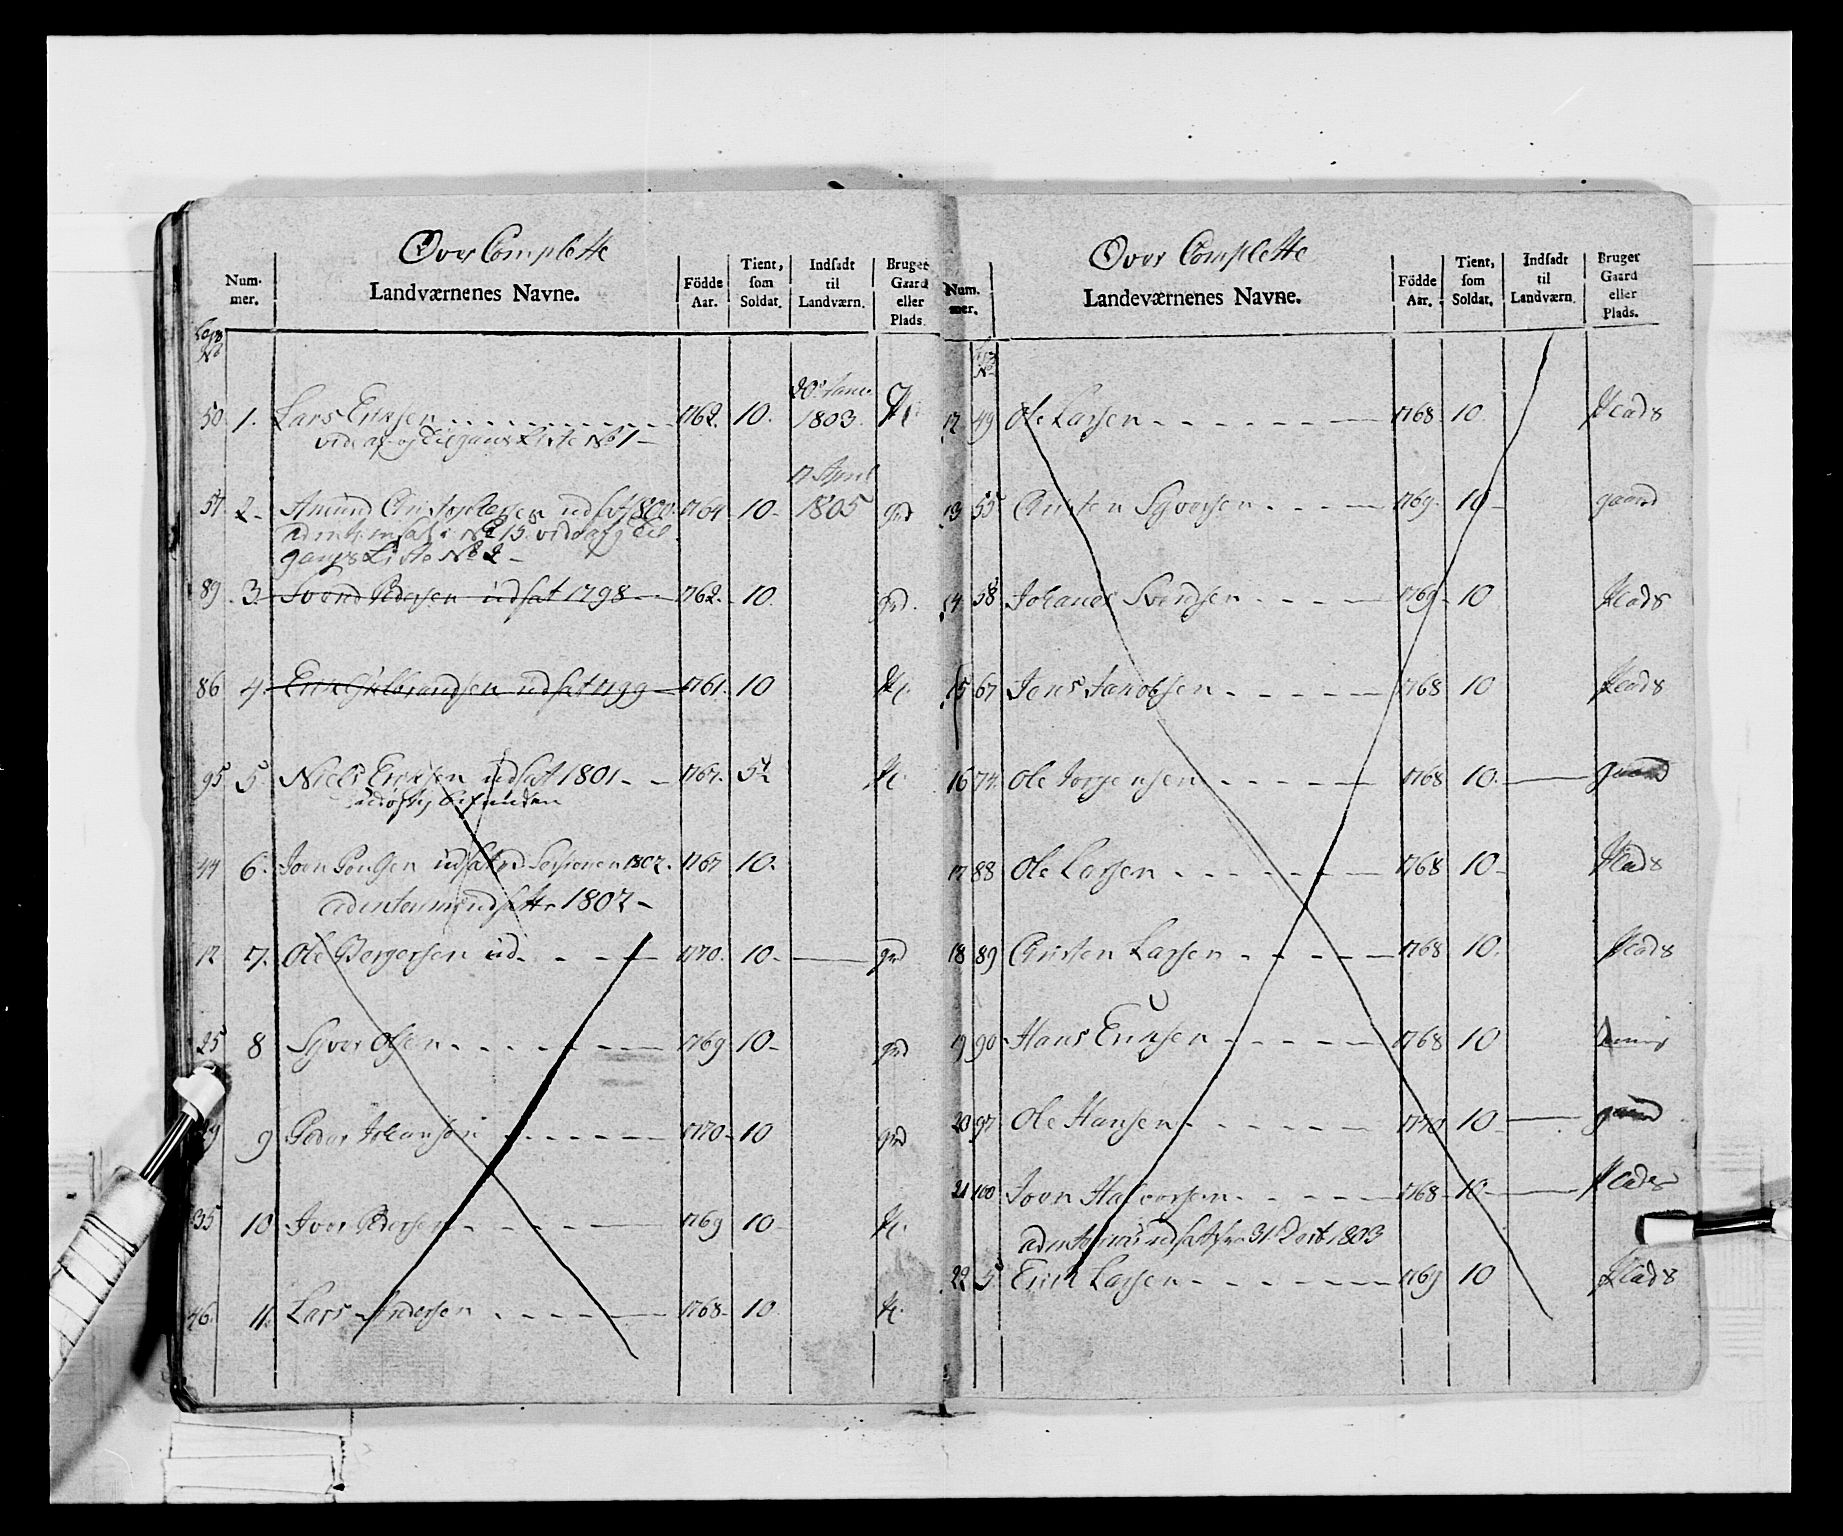 Over Complette
Num-
mer.
Landværnenes Navne.
Födde
Aar.
Tient,
som
Soldat.
Indsadt
til
Landværn.
Bruger
Gaard
eller
Plads.
No
50 1. Lars Eriksen 1762. 10. 20 1803. Pl:
vide af og Tilgangs Liste No 1
17 April
57 2. Amund Christophersen udsat 1800. 1764 10. 1805 grd
No 15. vide af g Til
gangs Liste No 2
89 3. Svend Pedersen udsat 1798 1762. 10. grd.
86 4. Erik Gulbrandsen udsat 1799 1761. 10 Pl.
95 5. Niels Eriksen udsat 1801 1767. 5½ Pl.
befunden
44 6. Joen Poulsen udsat ved Sessionen 1802. 1767 10.
1802
12 7. Ole Borgersen ud 1770. 10 grd
25 8 Syver Olsen 1769 10 grd
29 9 Peder Johansen 1770 10 grd
35 10 Iver Pedersen 1769 10 Pl.
46. 11. Lars Andersen 1768 10 Pl.
Over Complette
Num-
mer.
Landeværnenes Navne.
Födde
Aar.
Tient,
som
Soldat.
Indsadt
til
Landværn.
Bruger
Gaard
eller
Plads.
No
12 49 Ole Larsen 1768 10 Plads
13 55 Christen Syversen 1769. 10 gaard
14 58 Johanes Svendsen 1769 10 Plads
15 67 Jens Jacobsen 1768 10 Plads
16 74. Ole Jorgensen 1768 10. gaard
17 88 Ole Larsen 1768 10 Plads
18 89 Christen Larsen 1768 10. Plads
19 90 Hans Eriksen 1768 10
20 97 Ole Hansen 1770 10 gaard
21 100 Joen Halvorsen 1768 10 Plads
udsat fra 31 Decbr 1803
22 5 Erik Larsen 1769 10 Plads